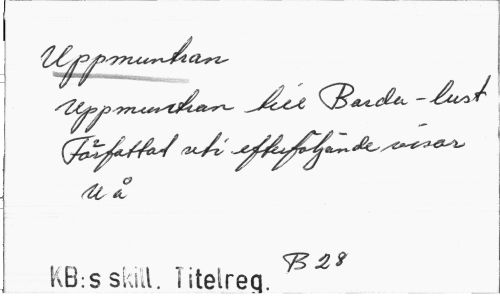 Uppmuntran
Uppmuntran till Bardu-lust
Författad uti efterföljande visor
U å
B 28
KB:s skill. Titelreg.